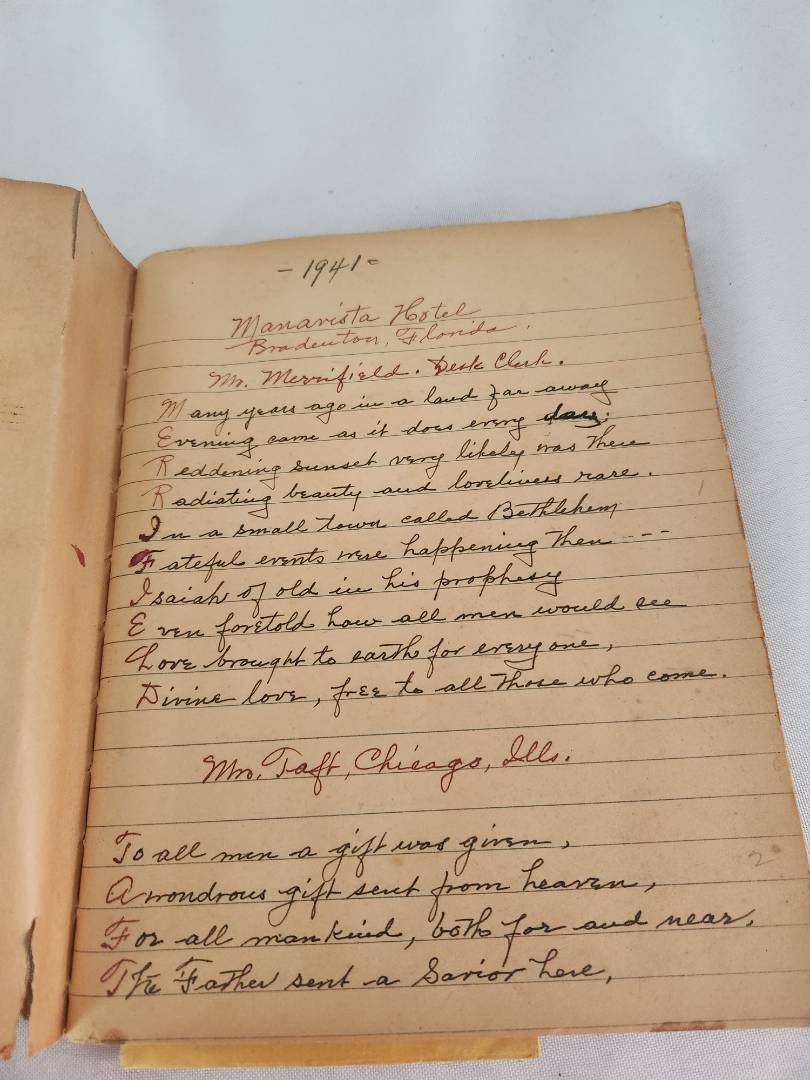 - 1941 -
Manavista Hotel
Bradenton, Florida.
Mr. Merrifield. Desk Clerk.
Many years ago in a land far away
Evening came as it does every day.
Reddening sunset very likely was there
Radiating beauty and loveliness rare.
In a small town called Bethlehem
Fateful events were happening then ---
Isaiah of old in his prophesy
Even foretold how all men would see
Love brought to earth for everyone,
Divine love, free to all those who come.
Mr. Taft, Chicago, Ills.
To all men a gift was given,
A wondrous gift sent from heaven,
For all mankind, both far and near,
The Father sent a Savior here,
2